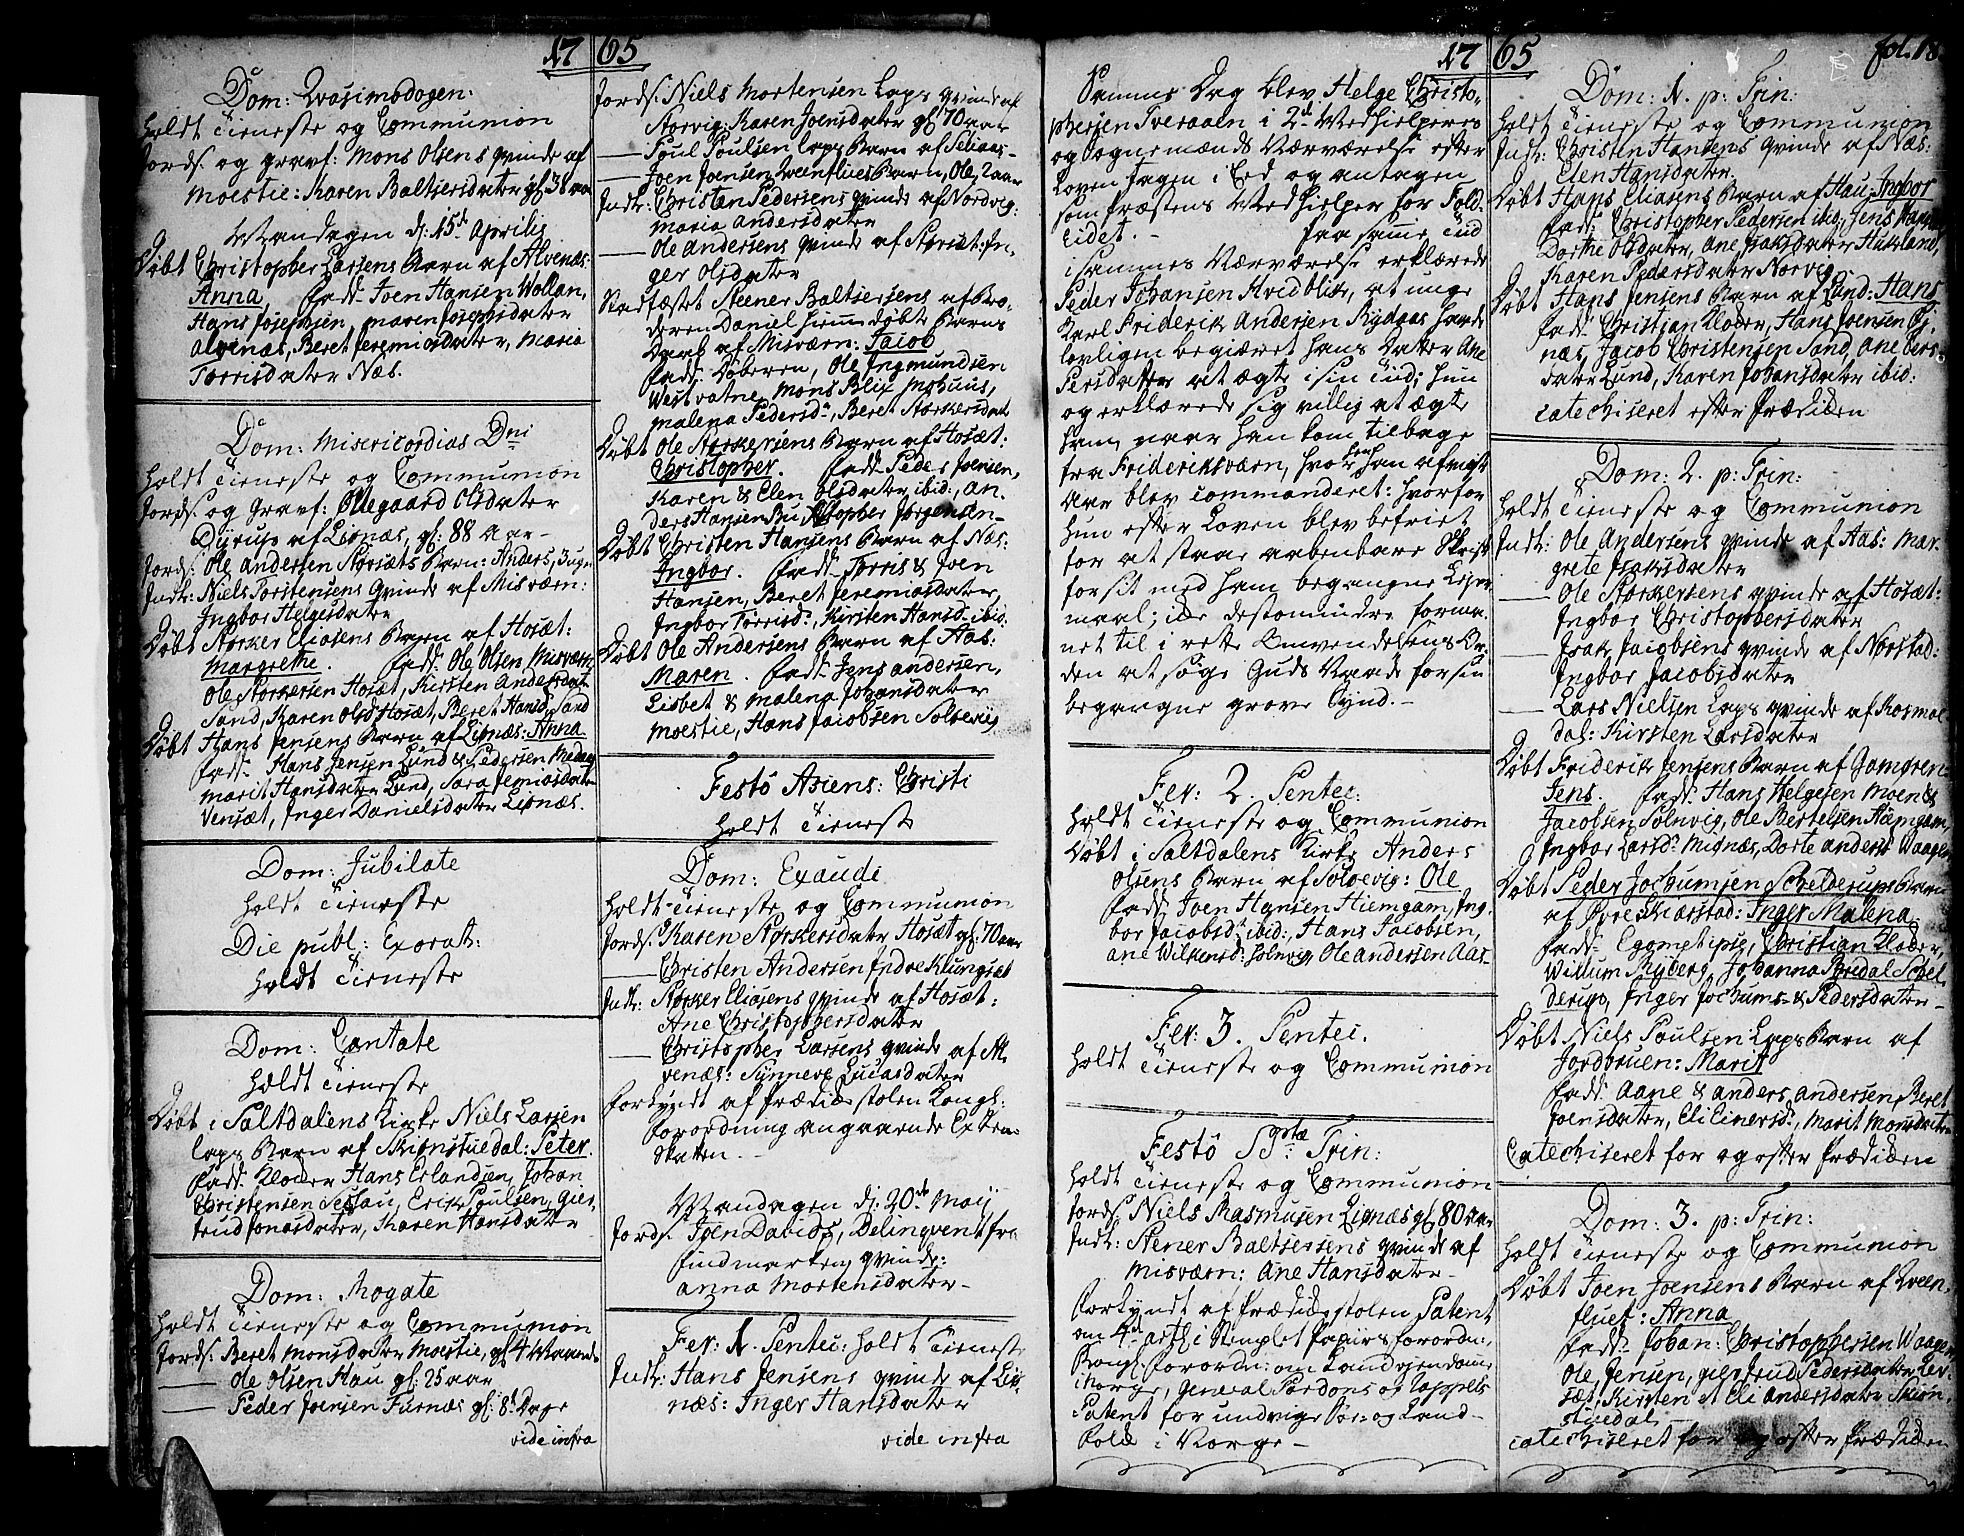 17 65
Dom: Qvasimodogen:
Holdt Tieneste og Communion
Jords. og gravf: Mons Olsens qvinde af
Moestie: Karen Baltsersdater gl: 38 aar
Mandagen d: 15de Aprilis
Døbt Christopher Larsens Barn af Alvenæs:
Anna. fadd. Joen Hansen Wollan,
Hans Josephsen, Maren Josephsdater
Alvenæs, Beret Jeremiædater, Maria
Torrisdater Næs.
Dom: Misericordias Dni
Holdt Tieneste og Communion
Jords. og Gravf: Oldegaard Olsdater
Dyrup af Lionæs, gl: 88 aar-
Jords: Ole Andersen Storsæts Barn: Anders, 3 uger
Indl: Niels Torstensens Qvinde af Misværn:
Ingbor Helgesdater
Døbt Storker Eliasens Barn af Hosæt:
Margrethe. fadd: Ole Olsen Misværn
Ole Storkersen Hosæt, Kirsten Andersdat
Sand, Karen Olsd Hosæt, Beret Hansd. Sand
Døbt Hans Jensens Barn af Lionæs: Anna
fadd. Hans Jensen Lund & Pedersen
Marit Hansdater Lund, Sara Jemiæsdater
Vensæt, Inger Danielsdater Lionæs.
Dom: Jubilate
Holdt Tieneste
Die publ: Exorat:
Holdt Tieneste
Dom: Cantate
Holdt Tieneste
Døbt i Saltdalens Kirke Niels Larsen
Laps Barn af Skionstuedal: Peter.
fadd. Klocker Hans Erlandsen, Johan
Christensen Sessau, Erik Poulsen, Gier-
trud Jonasdater, Karen Hansdater
Dom: Rogate
Holdt Tieneste og Communion
Jords. Beret Monsdater Moestie, gl 4 Maaned
— Ole Olsen Hau gl: 25 aar
— Peder Joensen Furnæs gl: 8t Dage
vide infra
Jords. Niels Mortensen Laps qvinde af
Storvig: Karen Joensdater gl 70 aar
— Poul Poulsen Laps Barn af Seliaas-
— Joen Joensen Qveenflues Barn, Ole, 2 aar
Indl: Christen Pedersens qvinde af Nordvig:
Maria Andersdater
— Ole Andersens qvinde af Storsæt: In-
ger Olsdater
Stadfæstet Steener Baltsersens af Bro-
deren Daniel hiemmedøbte Barns
Daab af Misværn: Jacob
fadd. Døberen, Ole Ingmundsen
Westvatne, Mons Blix Mohuus,
Malena Pedersd., Beret Storkersdat
Døbt Ole Storkersens Barn af Hosæt:
Christopher. fadd. Peder Joensen,
Karen & Elen Olsdater ibid:, An-
ders Hansen topher Jørgensen-
Døbt Christen Hansens Barn af Næs:
Ingbor. fadd. Torris & Joen
Hansen, Beret Jeremiædater,
Ingbor Torrisd., Kirsten Hansd. ibid.
Døbt Ole Andersens Barn af Aas:
Maren. fadd. Jens Andersen,
Lisbet & Malena Johansdater
Moestie, Hans Jacobsen Solvevig
Festo Asiens: Christi
Holdt Tieneste
Dom: Exaudi
Holdt Tieneste og Communion
Jords. Karen Storkersdater Hosæt gl: 70 aar
— Christen Andersen Indre Klungset
Indl: Storker Eliasens qvinde af Hosæt:
Ane Christophersdater
— Christopher Larsens qvinde af Al-
venæs: Synneve Lucasdater
Forkyndt af Prædikestolen Kongl:
Forordning angaaende Extra-
Skatten.-
Mandagen d: 20de Maij
Jords. Joen Davids, Delinqvent fra
Findmarken, qvinde:
Anna Mortensdater-
Fer: 1. Pentec: Holdt Tieneste
Indl: Hans Jensens qvinde af Lio-
næs: Inger Hansdater
vide infra
17 65
Samme Dag blev Helge Christo-
phersen Tveraaen i 2de Medhielperes
og Sognemænds Nærværelse efter
Loven tagen i Eed og antagen
som Præstens Medhielper for Fold.
Eidet.- Paa samme Tiid
i sammes Nærværelse erklærede
Peder Johansen Hvidblik, at unge
Karl Friderik Andersen Rydaas havde
lovligen begiæret hans Datter Ane
Persdatter at ægte i sin Tiid; hun
og erklærede sig villig at ægte
ham, naar han kom tilbage
fra Frideriksværn, hvorhen han afvigte
Aar blev commanderet: hvorfor
hun efter Loven blev befriet
for at staae aabenbare Skrift
for sit med ham begangne Leyer-
maal; ikke destomindre forma-
net til i rette Omvendelsens Or-
den at søge Guds Naade for sin
begangne grove Synd.-
Fer: 2. Pentec:
Holdt Tieneste og Communion
Døbt i Saltdalens Kirke Anders
Olsens Barn af Solvevig: Ole
fadd. Joen Hansen Hiemgam, Ing-
bor Jacobsd. ibid:, Hans Jacobsen,
Ane Wilkensd: Solvevig, Ole Andersen Aas-
Fer: 3. Pentec.
Holdt Tieneste og Communion
Festo SStæ Trin:
Holdt Tieneste og Communion
Jords. Niels Rasmusen Lionæs gl 80 aar
Indl: Stener Baltsersens qvinde af
Misværn: Ane Hansdater-
Forkyndt af Prædikestolen Patent
om 4de Art: i Stemplet Papiirs Forordn:,
Kongl. Forordn: om Landeyendomme
i Norge, General Pardons og Rappels
Patent for undvigte Søe- og Land-
Folk i Norge-
fol. 18.
Dom: 1. p: Trin:
Holdt Tieneste og Communion
Indl: Christen Hansens qvinde af Næs:
Elen Hansdater.
Døbt Hans Eliasens Barn af Hau: Ingbor
fadd. Christopher Pedersen ibid:, Jens
Dorthe Olsdater, Ane Isaksdater Huseland,
Karen Pedersdater Norvig.
Døbt Hans Jensens Barn af Lund: Hans
fadd. Christian Klocker, Hans Joensen Ty-
næs, Jacob Christensen Sand, Ane Pers-
dater Lund, Karen Johansdater ibid:
Catechiseret efter Prædiken
Dom: 2. p: Trin:
Holdt Tieneste og Communion
Indl: Ole Andersens qvinde af Aas: Mar-
grete Isaksdater
— Ole Storkersens qvinde af Hosæt:
Ingbor Christophersdater
— Isak Jacobsens qvinde af Norstad:
Ingbor Jacobsdater
— Lars Nielsen Laps qvinde af Rosmol-
dal: Kirsten Larsdater
Døbt Friderik Jensens Barn af Gamgren:
Jens. fadd. Hans Helgesen Moen &
Jacobsen Solvevig, Ole Bertelsen Hiemgam,
Ingbor Larsd. Mignæs, Dorte Andersd. Waagen
Døbt Peder Jochumsen Schelderups Barn
af Øvre Skierstad: Inger Malena.
fadd. Egomet ipse, Christian Klocker,
Willum Ryberg, Johanna Bredal Schel-
derup, Inger Jochums- & Pedersdater-
Døbt Niels Poulsen Laps Barn af
Jordbruen: Marit
fadd. Aane & Anders Andersen, Beret
Joensdater, Eli Einersd., Marit Monsdater
Catechiseret for og efter Prædiken
Dom: 3. p: Trin:
Holdt Tieneste og Communion
Døbt Joen Joensens Barn af Qveen-
fluet: Anna
fadd. Johan: Christophersen Waagen
Ole Jensen, Giertrud Pedersdater Lev-
sæt, Kirsten et Eli Andersdater Skion-
stuedal
Catechiseret for og efter Prædiken